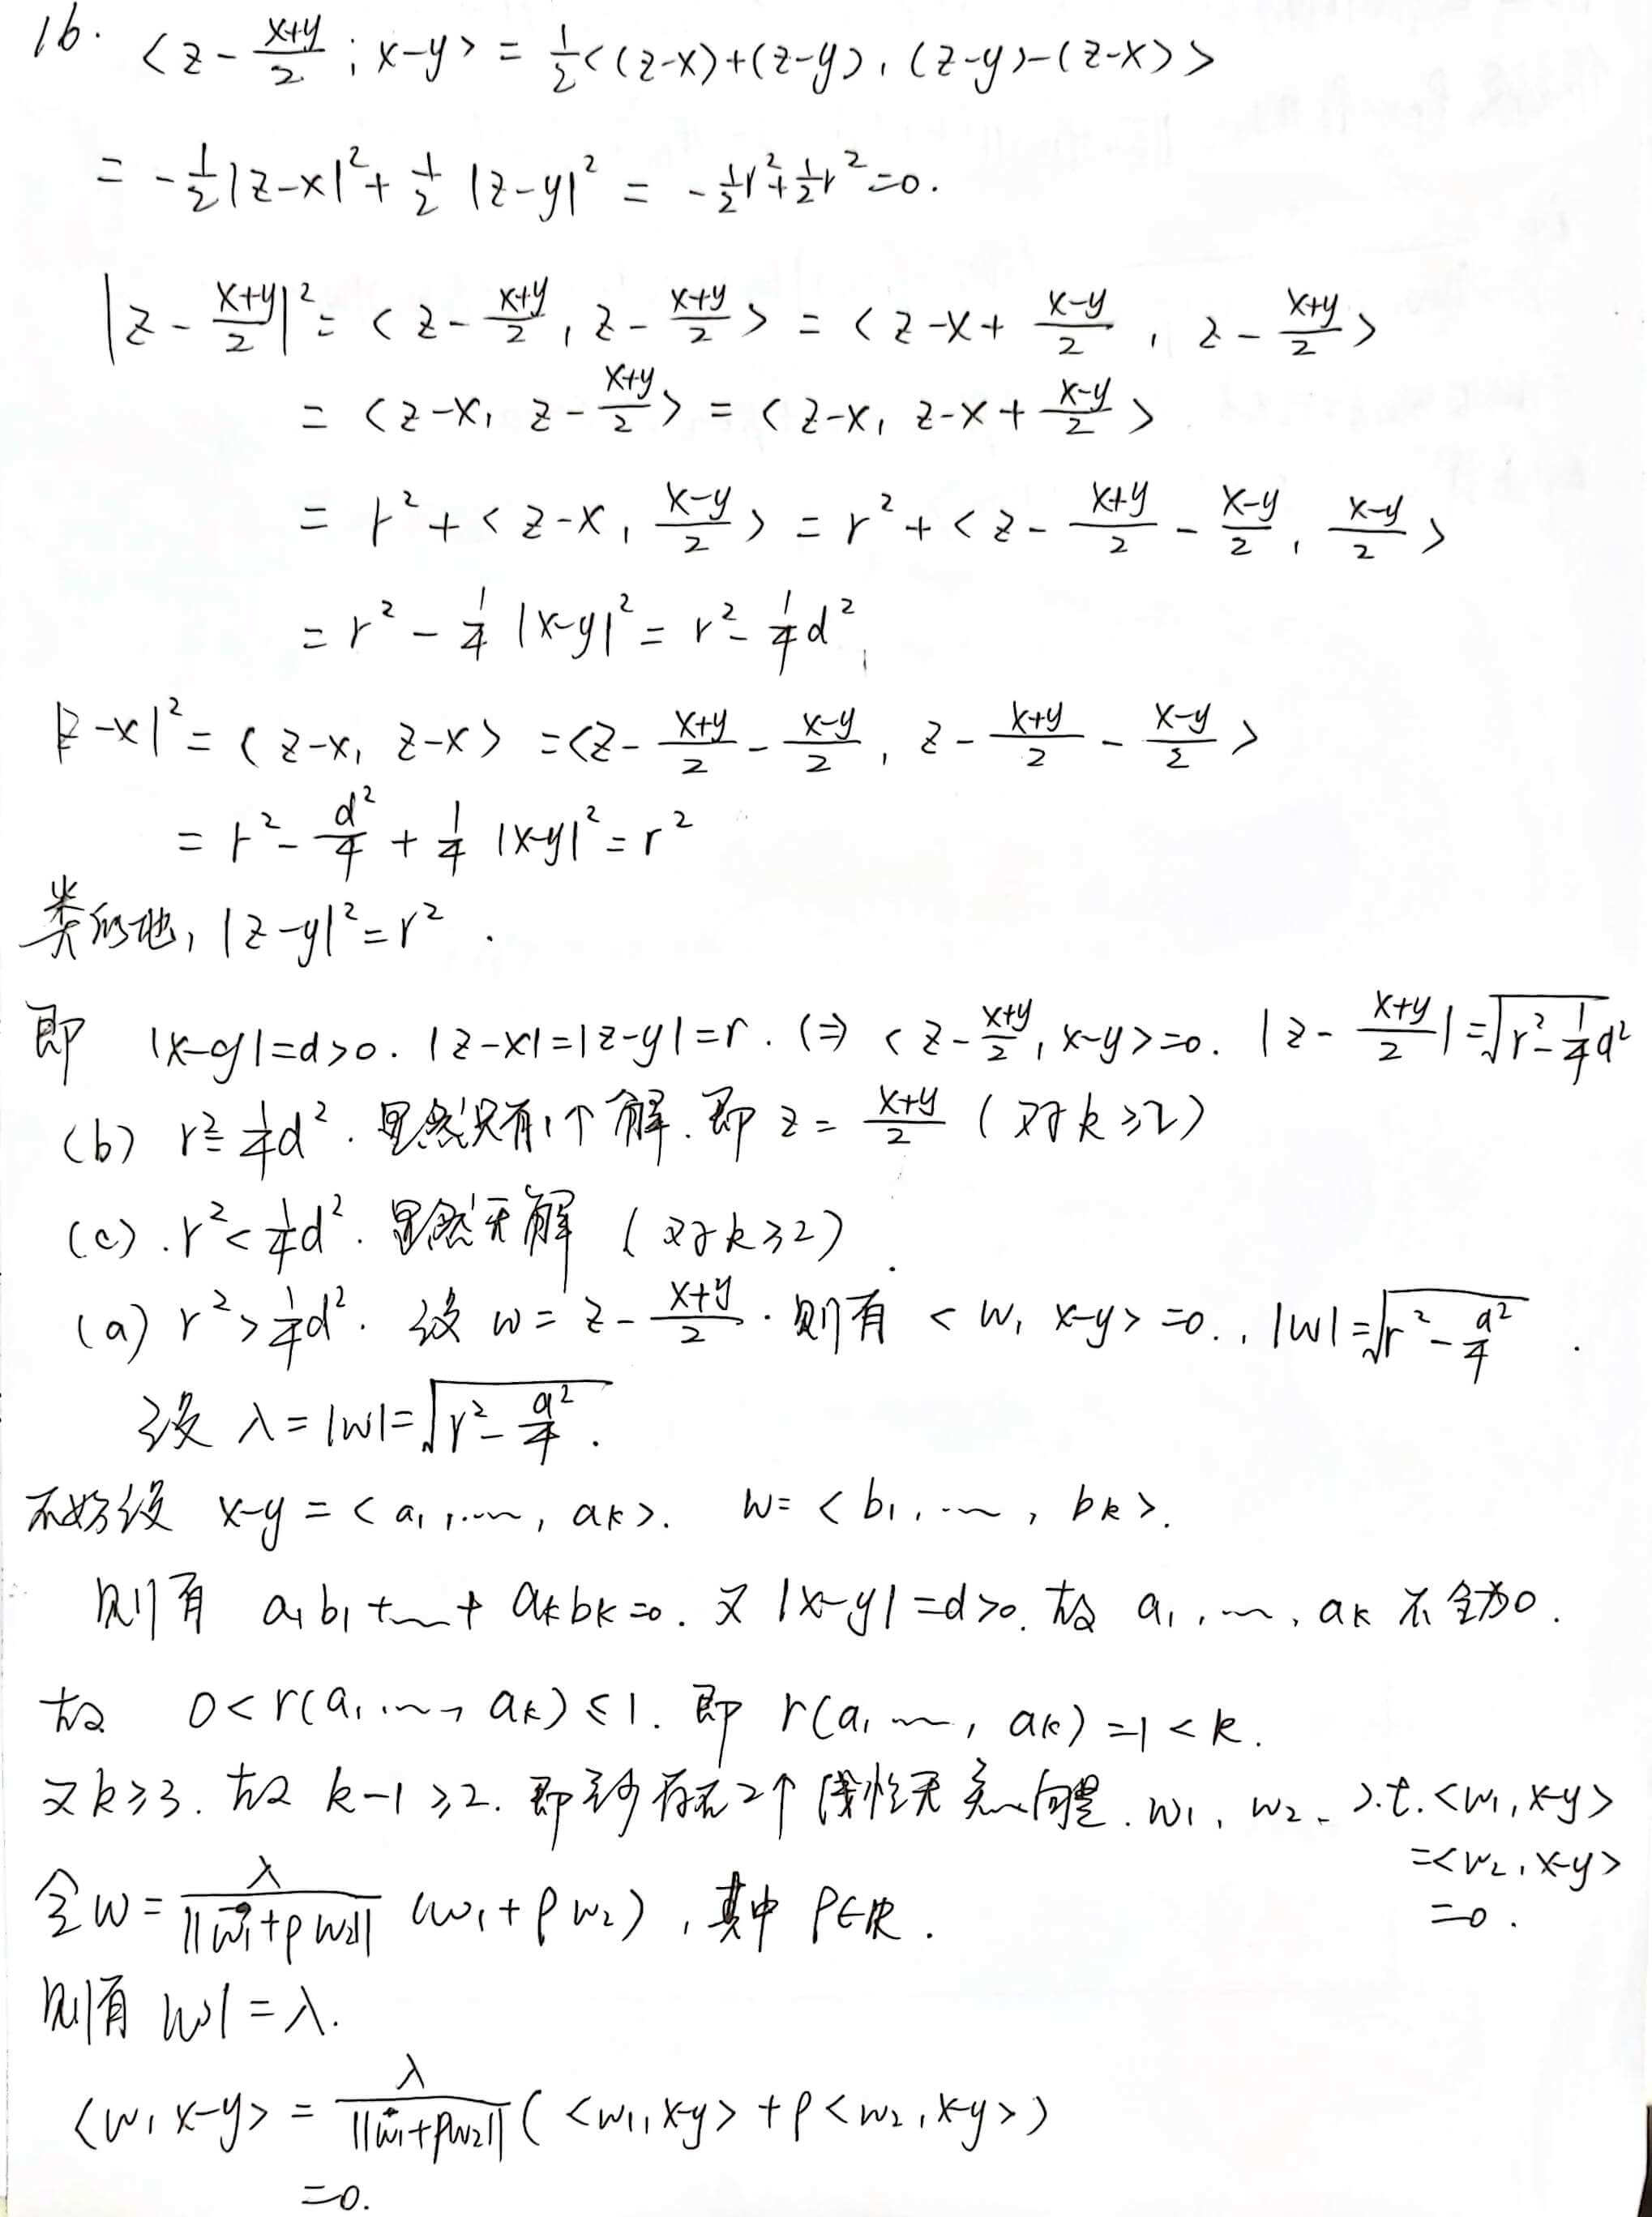 16. <z - (x+y)/2 ; x-y> = 1/2 <(z-x)+(z-y), (z-y)-(z-x)>
= -1/2 |z-x|² + 1/2 |z-y|² = -1/2 r² + 1/2 r² = 0.
|z - (x+y)/2|² = <z - (x+y)/2, z - (x+y)/2> = <z-x + (x-y)/2, z - (x+y)/2>
= <z-x, z - (x+y)/2> = <z-x, z-x + (x-y)/2>
= r² + <z-x, (x-y)/2> = r² + <z - (x+y)/2 - (x-y)/2, (x-y)/2>
= r² - 1/4 |x-y|² = r² - 1/4 d²,
|z-x|² = <z-x, z-x> = <z - (x+y)/2 - (x-y)/2, z - (x+y)/2 - (x-y)/2>
= r² - d²/4 + 1/4 |x-y|² = r²
类似地, |z-y|² = r².
即 |x-y|=d>0. |z-x|=|z-y|=r. (⇒) <z - (x+y)/2, x-y>=0. |z - (x+y)/2| = √(r² - 1/4 d²)
(b) r² = 1/4 d². 显然只有1个解. 即 z = (x+y)/2 (对 k≥2)
(c). r² < 1/4 d². 显然无解 (对 k≥2).
(a) r² > 1/4 d². 设 w = z - (x+y)/2. 则有 <w, x-y>=0., |w| = √(r² - d²/4).
设 λ = |w| = √(r² - d²/4).
不妨设 x-y = <a₁, …, aₖ>. w = <b₁, …, bₖ>.
则有 a₁b₁+…+aₖbₖ=0. 又 |x-y|=d>0. 故 a₁, …, aₖ 不全为0.
故 0 < r(a₁, …, aₖ) ≤ 1. 即 r(a₁ …, aₖ) = 1 < k.
又 k≥3. 故 k-1≥2. 即至少存在2个线性无关向量. w₁, w₂, s.t. <w₁, x-y>
=<w₂, x-y>
=0.
令 w = λ/‖w⃗₁+ρw₂‖ (w₁+ρw₂), 其中 ρ∈R.
则有 |w| = λ.
<w, x-y> = λ/‖w⃗₁+ρw₂‖ (<w₁, x-y> + ρ<w₂, x-y>)
=0.